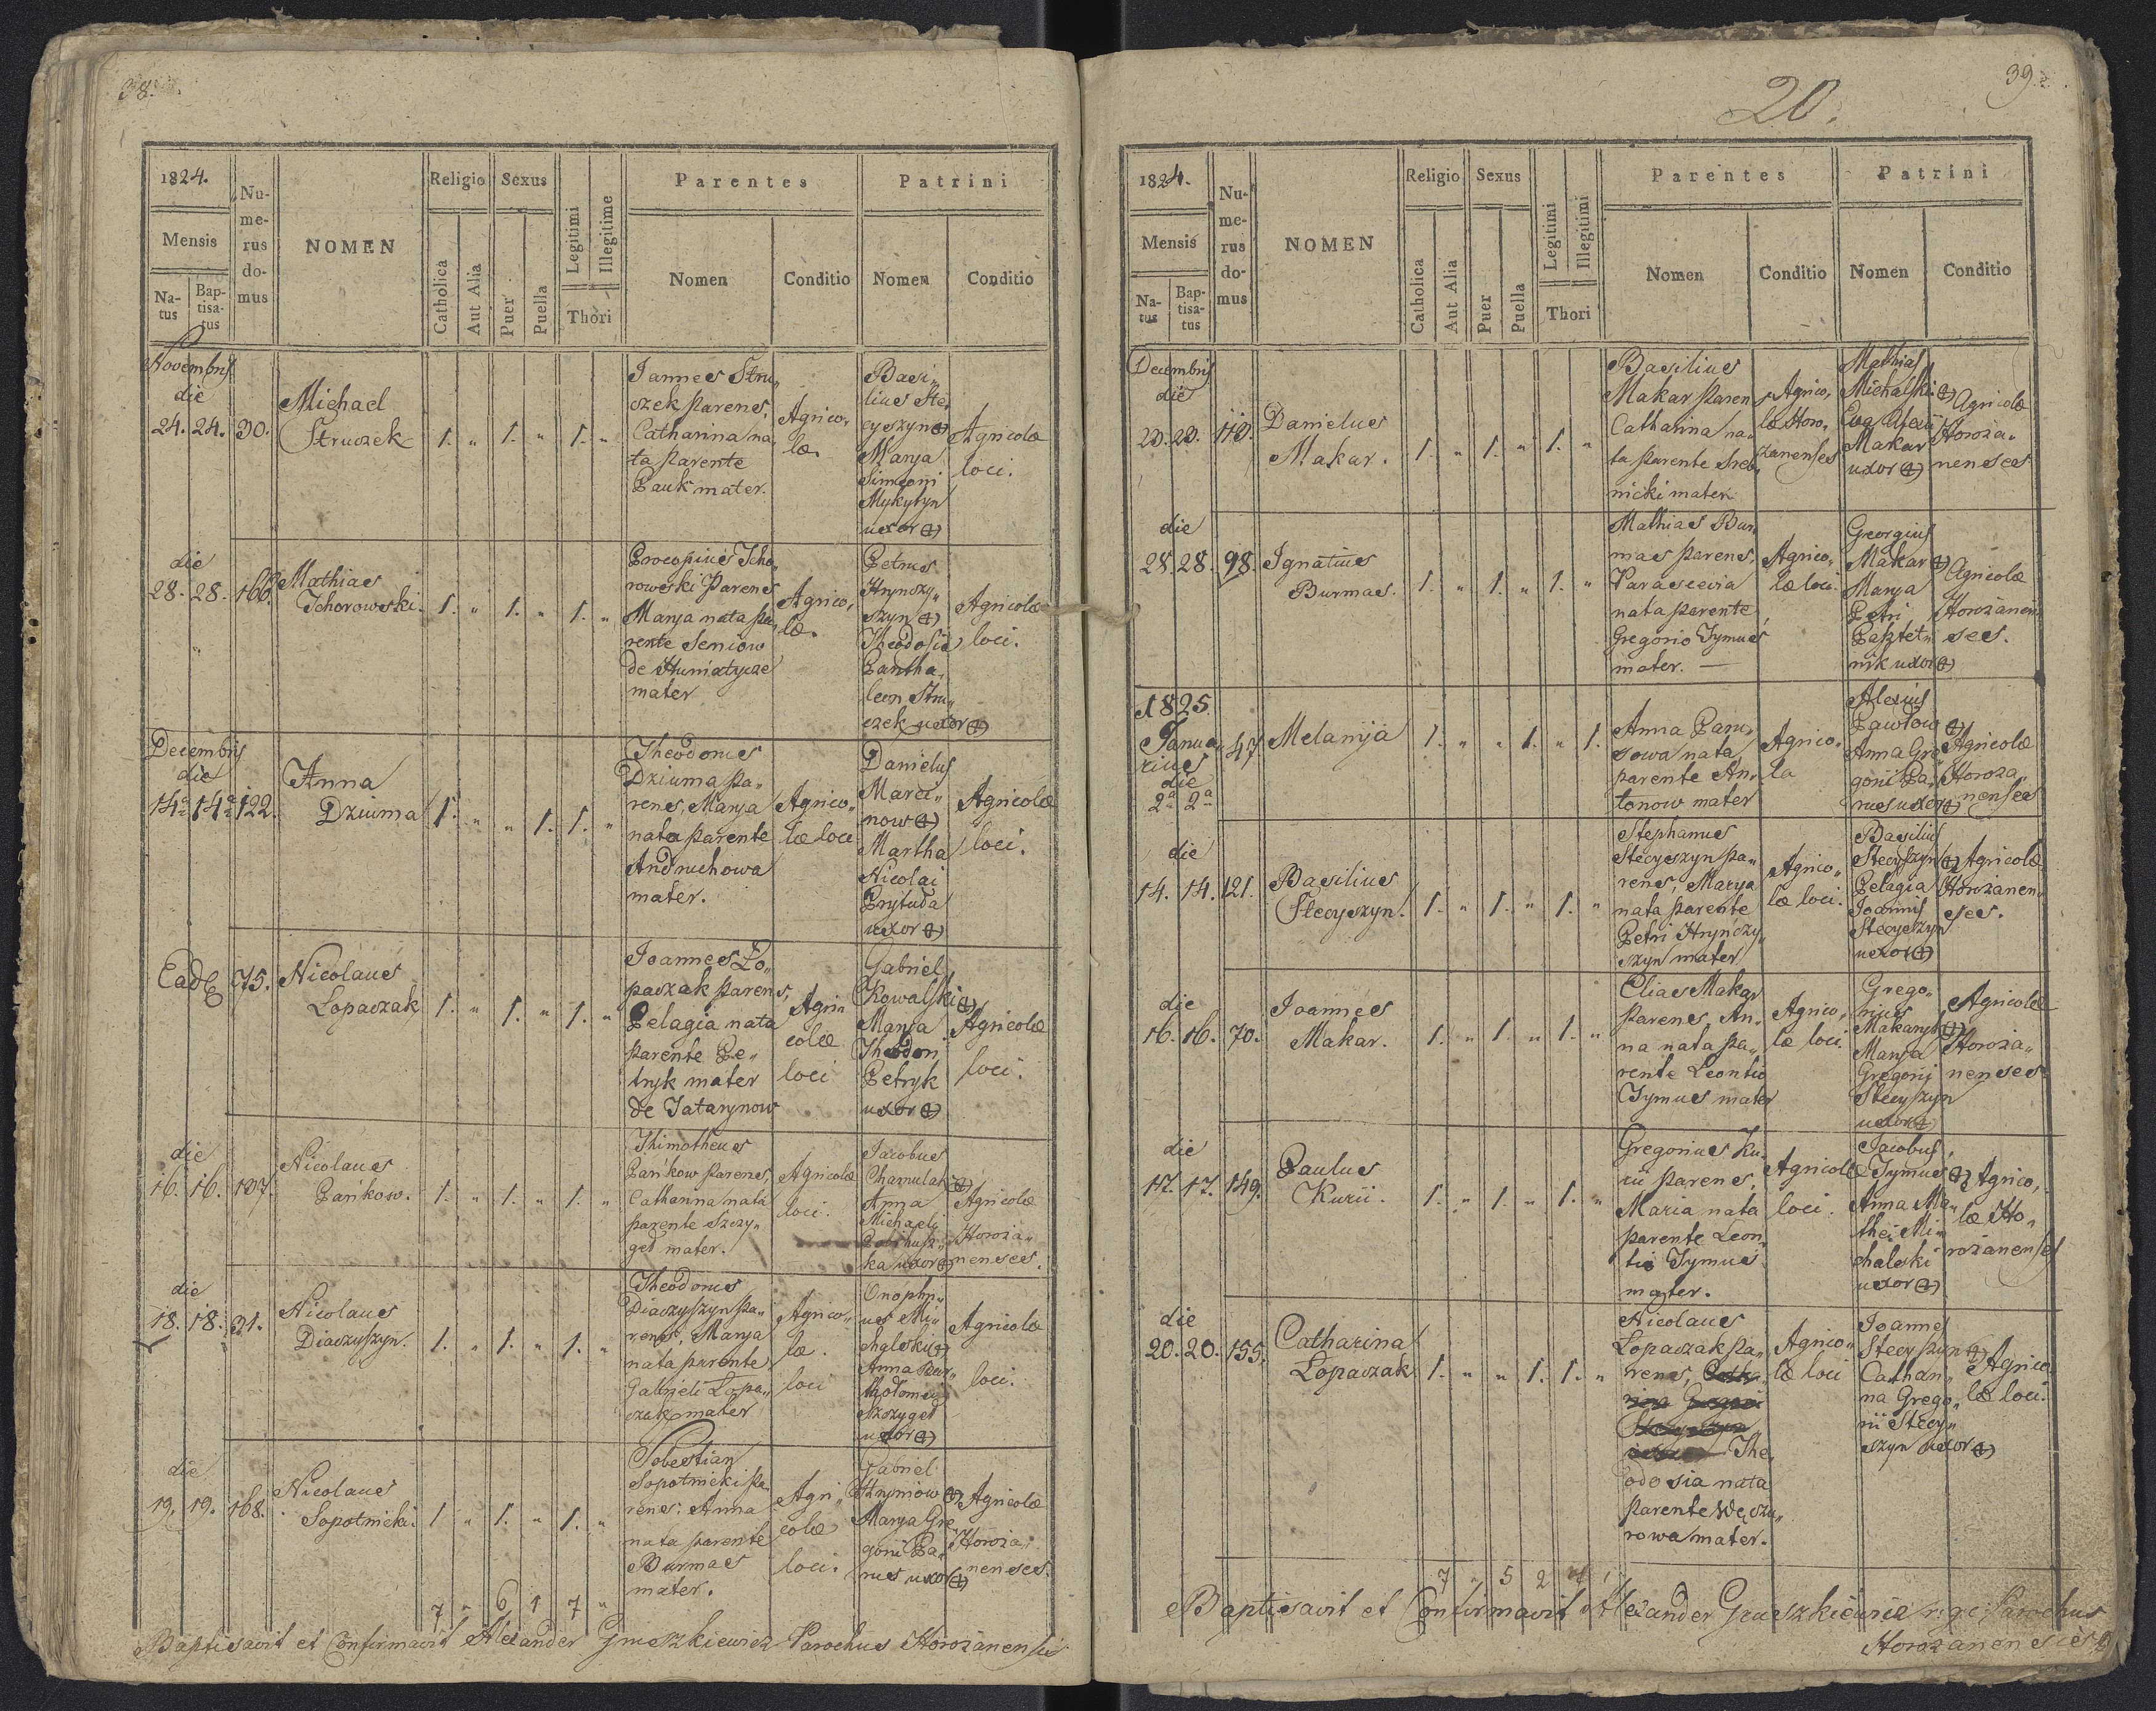 38.
1824.
Mensis
Na-
tus
Bap-
tisa-
tus
Nu-
me-
rus
do-
mus
NOMEN
Religio
Catholica
Aut Alia
Sexus
Puer
Puella
Legitimi
Illegitime
Thori
Parentes
Nomen
Conditio
Patrini
Nomen
Conditio
Novembris
die
24. 24. 30.
Michael
Struczek
1. " 1. " 1. "
Joannes Stru„
czek parens,
Catharina na„
ta parente
Pauk mater.
Agrico„
læ
Basi„
lius Ste„
cyszyn
Marya
Simeoni
Mykytyn
uxor
Agricolæ
loci.
die
28. 28. 166.
Mathias
Tchorowski.
1. " 1. " 1. "
Procopius Tcho„
rowski Parens
Marya nata pa„
rente Seniow
de Humiatycze
mater
Agrico„
læ.
Petrus
Hrynczy„
szyn
Theodosia
Pantha„
leon Stru„
czek uxor
Agricolæ
loci.
Decembris
die
14a 14a 122.
Anna
Dziuma
1. " " 1. 1. "
Theodorus
Dziuma pa„
rens, Marya
nata parente
Andruchowa
mater.
Agrico„
læ loci
Danielus
Marci„
now
Martha
Nicolai
Prytuda
uxor
Agricolæ
loci.
Ead 75.
Nicolaus
Lopaczak
1. " 1. " 1. "
Joannes Lo„
paczak parens,
Pelagia nata
parente Pe„
tryk mater
de Tatarynow
Agri
colæ
loci
Gabriel
Kowalski
Marya
Theodori
Petryk
uxor
Agricolæ
loci.
die
16. 16. 107.
Nicolaus
Pańkow.
1. " 1. " 1. "
Thimotheus
Pańkow parens,
Catharina nata
parente Szczy„
gel mater.
Agricolæ
loci.
Jacobus
Chamulak
Anna
Michaeli
ka uxor
Agricolæ
Horoża„
nenses.
die
18. 18. 31.
Nicolaus
Diaczyszyn.
1. " 1. " 1. "
Theodorus
Diaczyszyn pa„
rens, Marya
nata parente
Gabrieli Lopa„
czak mater
Agrico„
læ.
loci
Onophri„
us Mi„
chalski
Anna Bar„
tholomei
Szczygel
uxor
Agricolæ
loci.
die
19. 19. 168.
Nicolaus
Sopotnicki.
1 " 1. " 1. "
Sebestian
Sopotnicki pa„
rens: Anna
nata parente
Burmas
mater.
Agri„
colæ
loci.
Gabriel
Hryniow
Marya Gre„
gorii Pa„
rus uxor
Agricolæ
Horoża„
nenses.
7 " 6 1 7 "
Baptisavit et Confirmavit Alexander Gruszkiewicz Parochus Horożanensis
39.
20.
1824.
Mensis
Na-
tus
Bap-
tisa-
tus
Nu-
me-
rus
do-
mus
NOMEN
Religio
Catholica
Aut Alia
Sexus
Puer
Puella
Legitimi
Illegitimi
Thori
Parentes
Nomen
Conditio
Patrini
Nomen
Conditio
Decembris
die
Danielus
Makar.
1. " 1. " 1. "
Basilius
Makar paren s
Catharina na„
ta parente Sreb„
nicki mater
Agrico„
læ Horo„
żanenses
Mathias
Michalski
Eva Alexii
Makar
uxor
Agricolæ
Horoża„
nenses
die
28. 28. 98.
Ignatius
Burmas.
1. " 1. " 1. "
Mathias Bur„
mas parens,
Parascevia
nata parente
Gregorio Tymus
mater.
Agrico„
læ loci.
Georgius
Makar
Marya
Petri
Pasztet„
nik uxor
Agricolæ
Horożanen„
ses.
1825.
Janua„
rius
die
2a 2a
47
Melanija
1. " " 1. " 1.
Anna Paru„
sowa nata
parente An„
tonow mater
Agrico„
la
Alexius
Pawłow
Anna Gre„
gorii Pa„
rus uxor
Agricolæ
Horoża„
nenses
die
14. 14. 121.
Basilius
Stecyszyn.
1. " 1. " 1. "
Stephanus
Stecyszyn pa„
rens, Marya
nata parente
Petri Hrynczy„
szyn mater
Agrico„
læ loci.
Basilius
Stecyszyn
Pelagia
Joannis
Stecyszyn
uxor
Agricolæ
Horożanen„
ses.
die
16. 16. 70.
Joannes
Makar.
1. " 1. " 1. "
Elias Makar
parens, An„
na nata pa„
rente Leontio
Tymus mater
Agrico„
læ loci.
Grego„
rius
Makaryk
Marya
Gregorij
Stecyszyn
uxor
Agricolæ
Horoża„
nenses
die
17. 17. 149.
Paulus
Kurii.
1. " 1. " 1. "
Gregorius Ku„
rii parens,
Maria nata
parente Leon„
tio Tymus
mater.
Agricolæ
loci.
Jacobus
Tymus
Anna Ma„
thei Mi„
chalski
uxor
Agrico„
læ Ho„
rożanenses
die
20. 20. 155.
Catharina
Lopaczak
1. " " 1. 1. "
Nicolaus
Lopaczak pa„
rens,
The„
odosia nata
parente Węczu„
rowa mater.
Agrico„
læ loci
Joannes
Stecyszyn
Cathari„
na Grego„
rii Stecy„
szyn uxor
Agrico
læ loci.
7 " 5 2
Baptisavit et Confirmavit Alexander Gruszkiewicz r. g. c. Parochus
Horożanensis